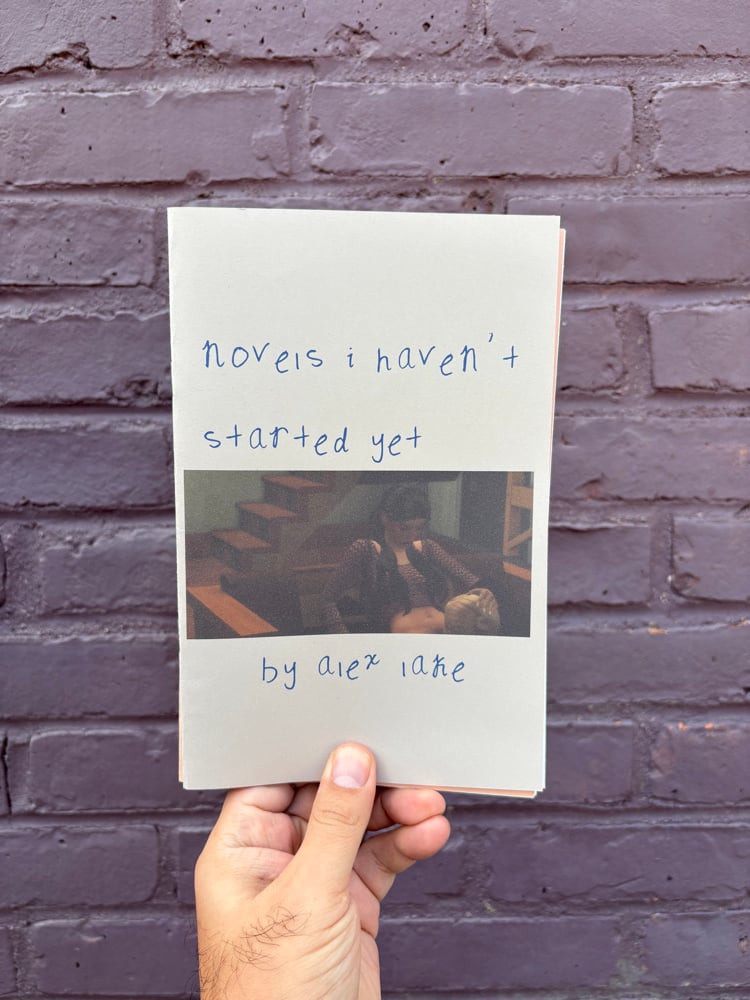 novels i haven't
started yet
by alex lake